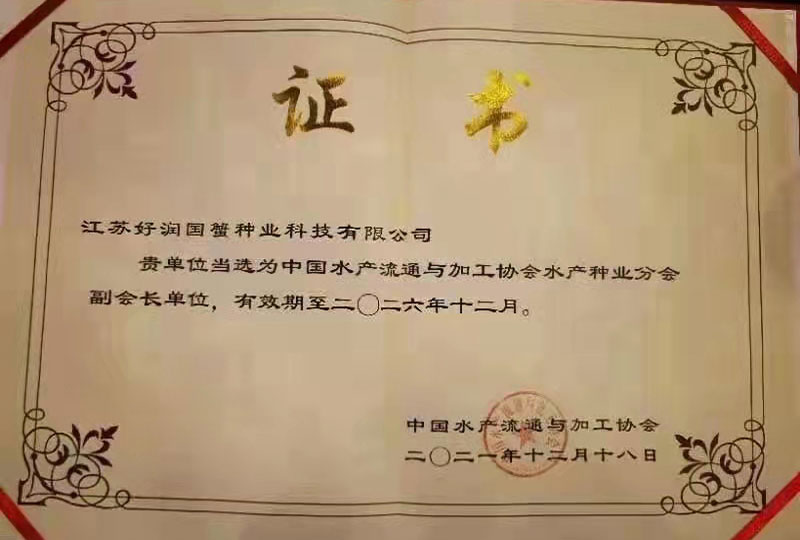 证书
江苏好润国蟹种业科技有限公司
贵单位当选为中国水产流通与加工协会水产种业分会
副会长单位，有效期至二〇二六年十二月。
中国水产流通与加工协会
二〇二一年十二月十八日